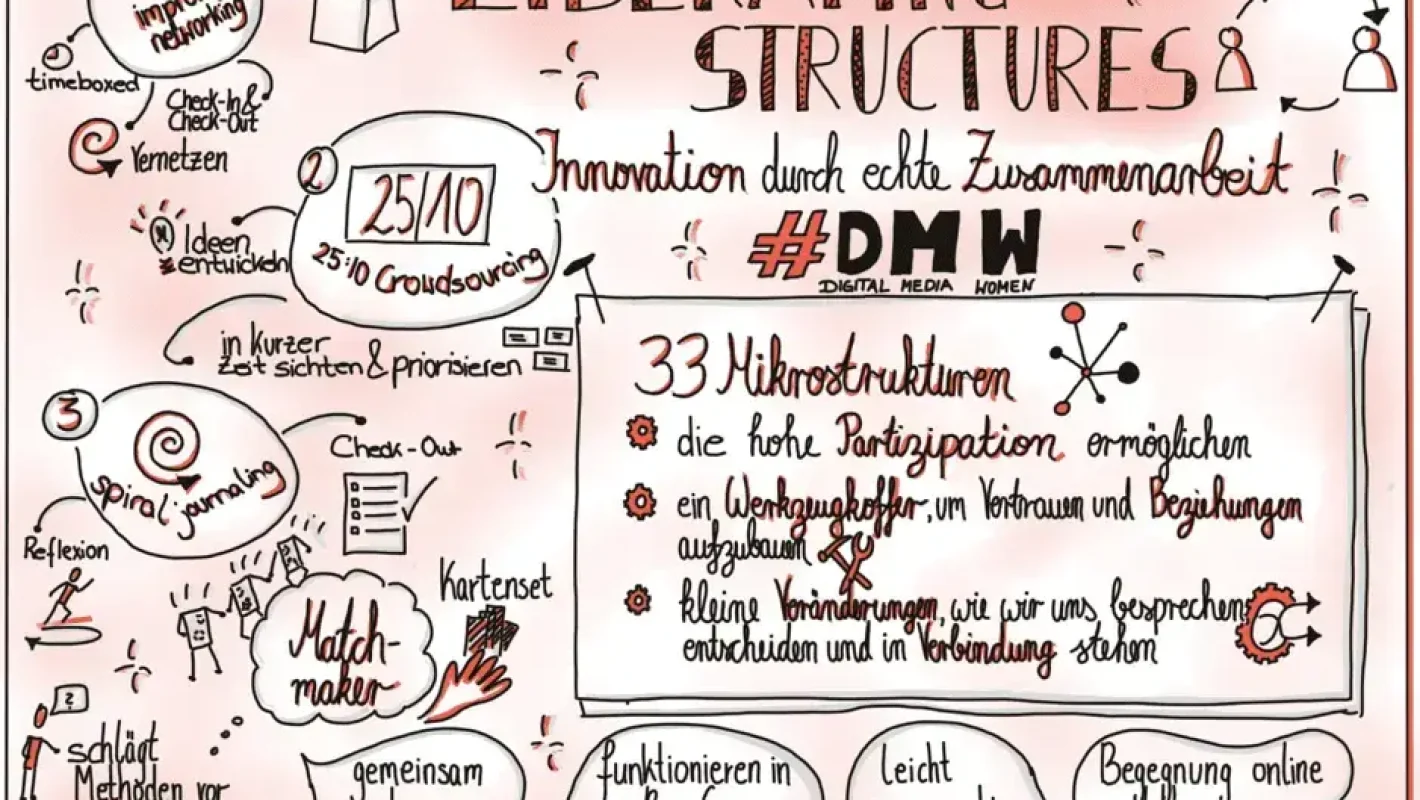 networking
timeboxed
Check-In &
Check-Out
Vernetzen
STRUCTURES
Innovation durch echte Zusammenarbeit
#DMW
DIGITAL MEDIA WOMEN
2
25/10
25:10 Crowdsourcing
Ideen
entwickeln
in kurzer
Zeit sichten & priorisieren
3
spiral journaling
Check-Out
Reflexion
33 Mikrostrukturen
die hohe Partizipation ermöglichen
ein Werkzeugkoffer, um Vertrauen und Beziehungen
aufzubauen
kleine Veränderungen, wie wir uns besprechen,
entscheiden und in Verbindung stehen
Kartenset
Match-
maker
?
schlägt
Methoden vor
gemeinsam
funktionieren in
Leicht
Begegnung online